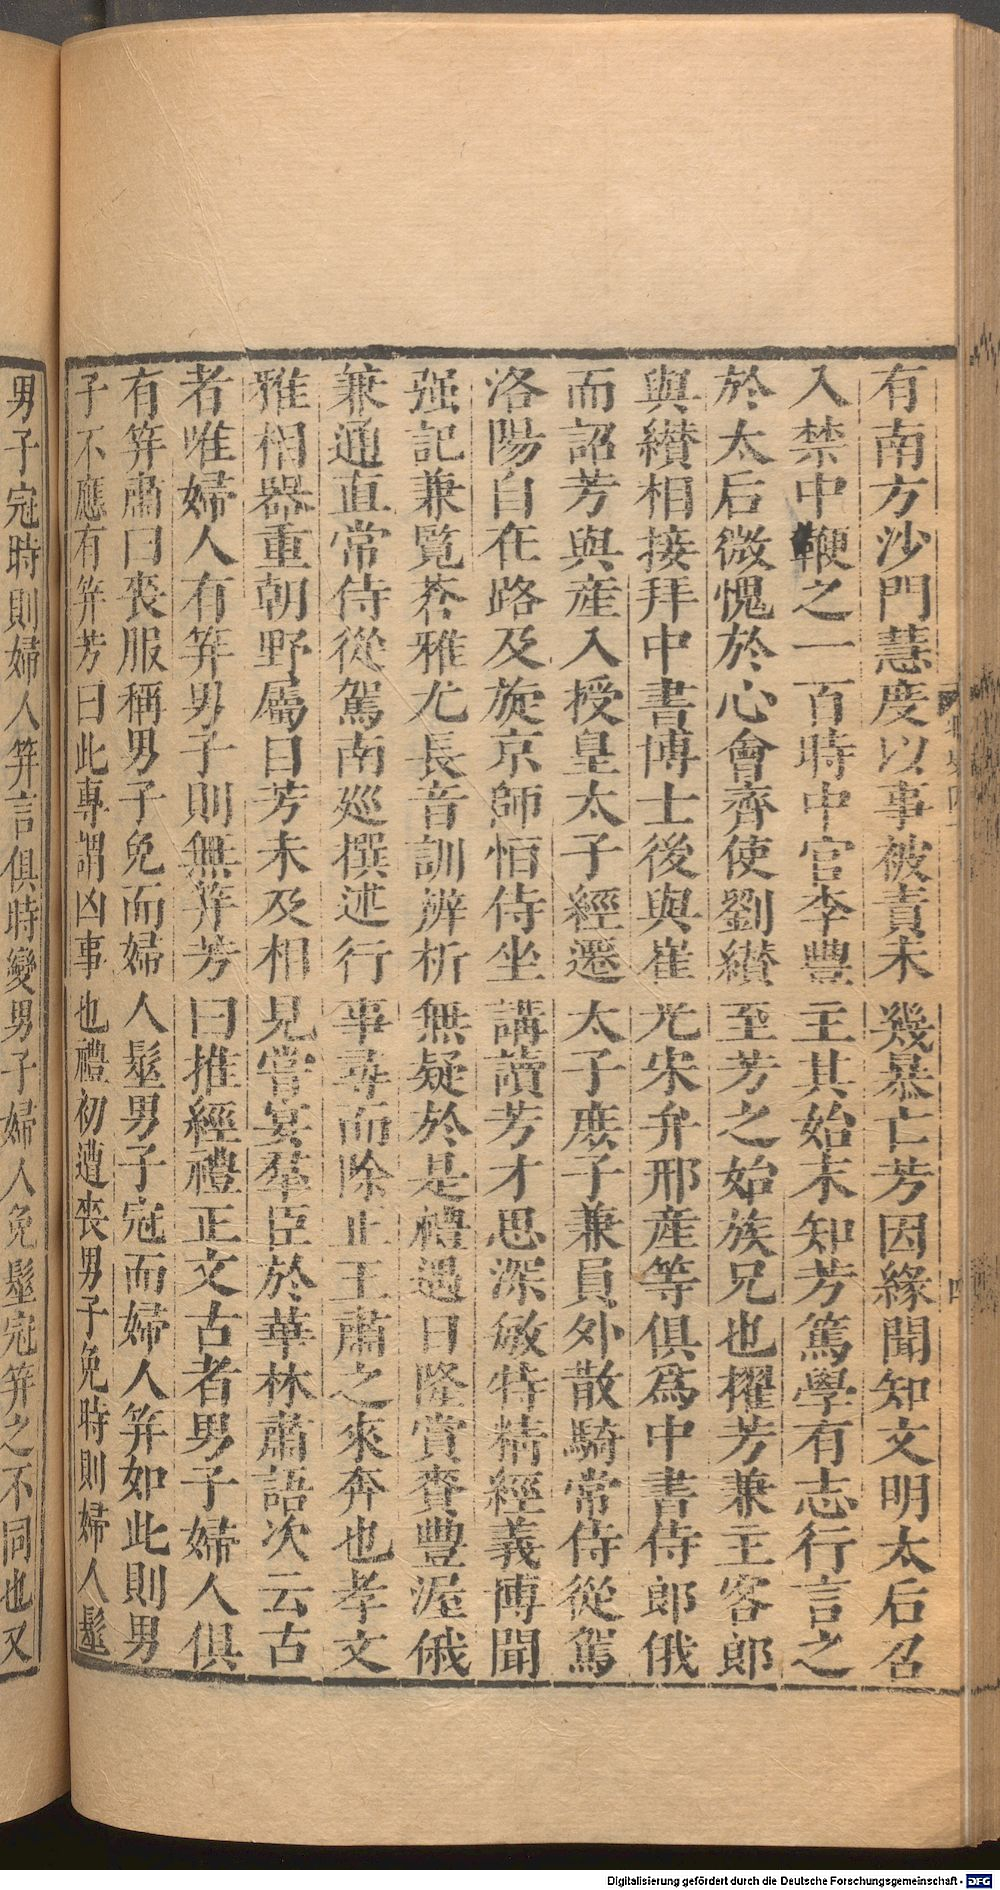 有南方沙門慧度以事被責未幾暴亡芳因緣聞知文明太后召
入禁中鞭之一百時中官李豐主其始末知芳篤學有志行言之
於太后微愧於心會齊使劉纘至芳之始族兄也擢芳兼主客郎
與纘相接拜中書博士後與崔光宋弁邢產等俱爲中書侍郎俄
而詔芳與產入授皇太子經遷太子庶子兼員外散騎常侍從駕
洛陽自在路及旋京師恒侍坐講讀芳才思深敏特精經義博聞
强記兼覽蒼雅尤長音訓辨析無疑於是禮遇日隆賞賚豐渥俄
兼通直常侍從駕南巡撰述行事尋而除正王肅之來奔也孝文
雅相器重朝野屬目芳未及相見嘗宴羣臣於華林肅語次云古
者唯婦人有笄男子則無笄芳曰推經禮正文古者男子婦人俱
有笄肅曰喪服稱男子免而婦人髽男子冠而婦人笄如此則男
子不應有笄芳曰此專謂凶事也禮初遭喪男子免時則婦人髽
男子冠時則婦人笄言俱時變男子婦人免髽冠笄之不同也又
Digitalisierung gefördert durch die Deutsche Forschungsgemeinschaft - DFG